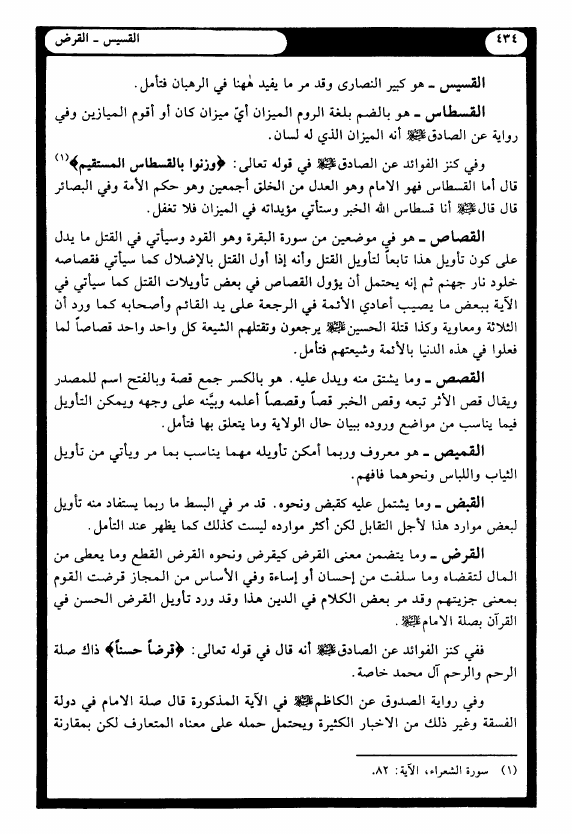 ٤٣٤
القسيس ـ القرض
القسيس ـ هو كبير النصارى وقد مر ما يفيد ههنا في الرهبان فتأمل.
القسطاس ـ هو بالضم بلغة الروم الميزان أيّ ميزان كان أو أقوم الميازين وفي
رواية عن الصادق ﷺ أنه الميزان الذي له لسان.
وفي كنز الفوائد عن الصادق ﷺ في قوله تعالى: ﴿وزنوا بالقسطاس المستقيم﴾(١)
قال أما القسطاس فهو الامام وهو العدل من الخلق أجمعين وهو حكم الأمة وفي البصائر
قال قال ﷺ أنا قسطاس الله الخبر وستأتي مؤيداته في الميزان فلا تغفل.
القصاص ـ هو في موضعين من سورة البقرة وهو القود وسيأتي في القتل ما يدل
على كون تأويل هذا تابعاً لتأويل القتل وأنه إذا أول القتل بالإضلال كما سيأتي فقصاصه
خلود نار جهنم ثم إنه يحتمل أن يؤول القصاص في بعض تأويلات القتل كما سيأتي في
الآية ببعض ما يصيب أعادي الأئمة في الرجعة على يد القائم وأصحابه كما ورد أن
الثلاثة ومعاوية وكذا قتلة الحسين ﷺ يرجعون وتقتلهم الشيعة كل واحد واحد قصاصاً لما
فعلوا في هذه الدنيا بالأئمة وشيعتهم فتأمل.
القصص ـ وما يشتق منه ويدل عليه. هو بالكسر جمع قصة وبالفتح اسم للمصدر
ويقال قص الأثر تبعه وقص الخبر قصاً وقصصاً أعلمه وبيَّنه على وجهه ويمكن التأويل
فيما يناسب من مواضع وروده ببيان حال الولاية وما يتعلق بها فتأمل.
القميص ـ هو معروف وربما أمكن تأويله مهما يناسب بما مر ويأتي من تأويل
الثياب واللباس ونحوهما فافهم.
القبض ـ وما يشتمل عليه كقبض ونحوه. قد مر في البسط ما ربما يستفاد منه تأويل
لبعض موارد هذا لأجل التقابل لكن أكثر موارده ليست كذلك كما يظهر عند التأمل.
القرض ـ وما يتضمن معنى القرض كيقرض ونحوه القرض القطع وما يعطى من
المال لتقضاه وما سلفت من إحسان أو إساءة وفي الأساس من المجاز قرضت القوم
بمعنى جزيتهم وقد مر بعض الكلام في الدين هذا وقد ورد تأويل القرض الحسن في
القرآن بصلة الامام ﷺ.
ففي كنز الفوائد عن الصادق ﷺ أنه قال في قوله تعالى: ﴿قرضاً حسناً﴾ ذاك صلة
الرحم والرحم آل محمد خاصة.
وفي رواية الصدوق عن الكاظم ﷺ في الآية المذكورة قال صلة الامام في دولة
الفسقة وغير ذلك من الاخبار الكثيرة ويحتمل حمله على معناه المتعارف لكن بمقارنة
(١) سورة الشعراء، الآية: ٨٢.